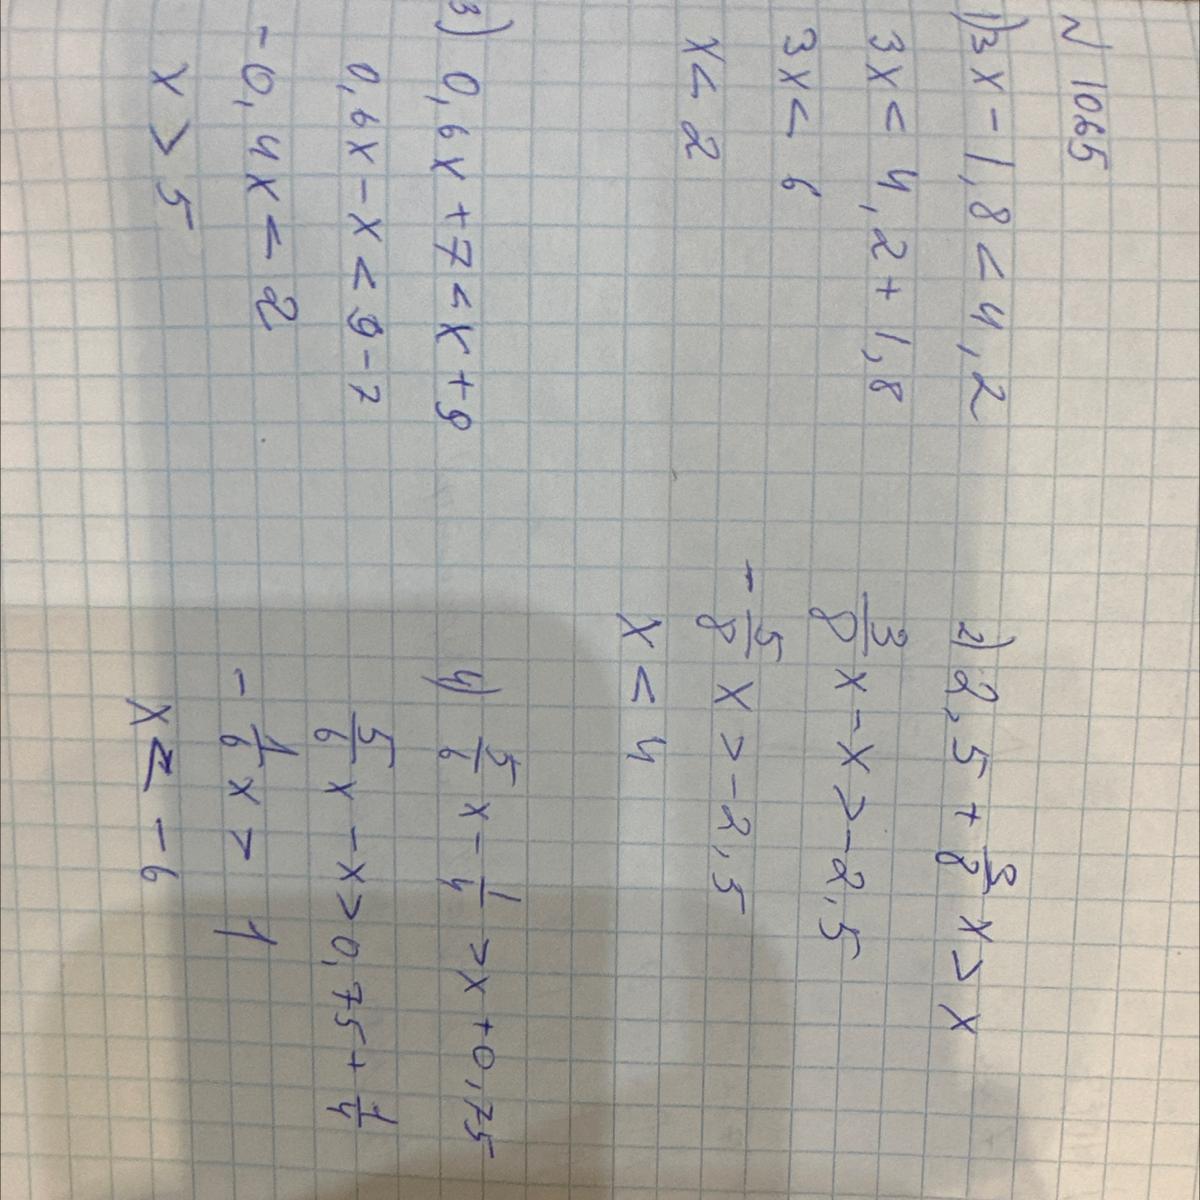 N 1065
1) 3x - 1,8 < 4,2
3x < 4,2 + 1,8
3x < 6
x < 2
2) 2,5 + 3/8 x > x
3/8 x - x > -2,5
- 5/8 x > -2,5
x < 4
3) 0,6x + 7 < x + 9
0,6x - x < 9 - 7
- 0,4x < 2
x > 5
4) 5/6 x - 1/4 > x + 0,75
5/6 x - x > 0,75 + 1/4
- 1/6 x > 1
x < -6